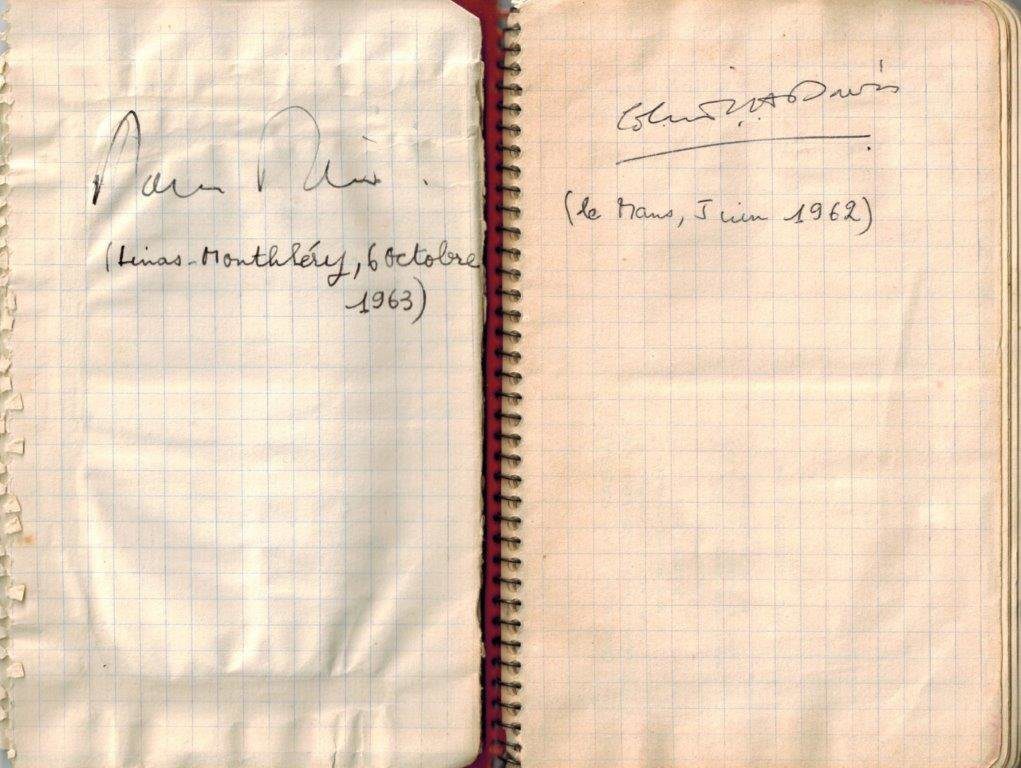 (Linas-Monthléry, 6 Octobre
1963)
Colin Davis
(le Mans, Juin 1962)